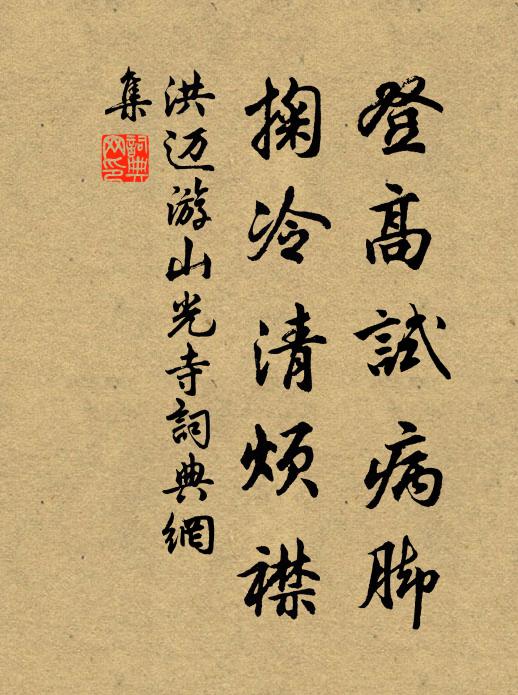 登高試病脚
掬冷清煩襟
洪迈游山光寺詞典網
集
詞典網印